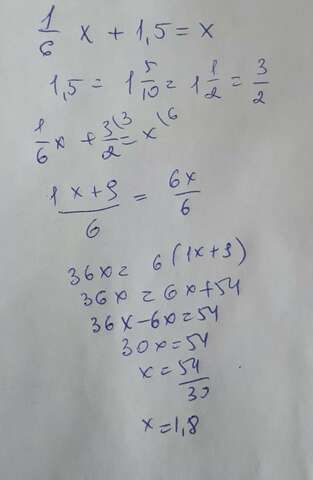 1/6 x + 1,5 = x
1,5 = 1 5/10 = 1 1/2 = 3/2
1/6 x + 3/2 \3 = x \6
1x+9/6 = 6x/6
36x = 6(1x+9)
36x = 6x+54
36x-6x=54
30x=54
x = 54/30
x=1,8